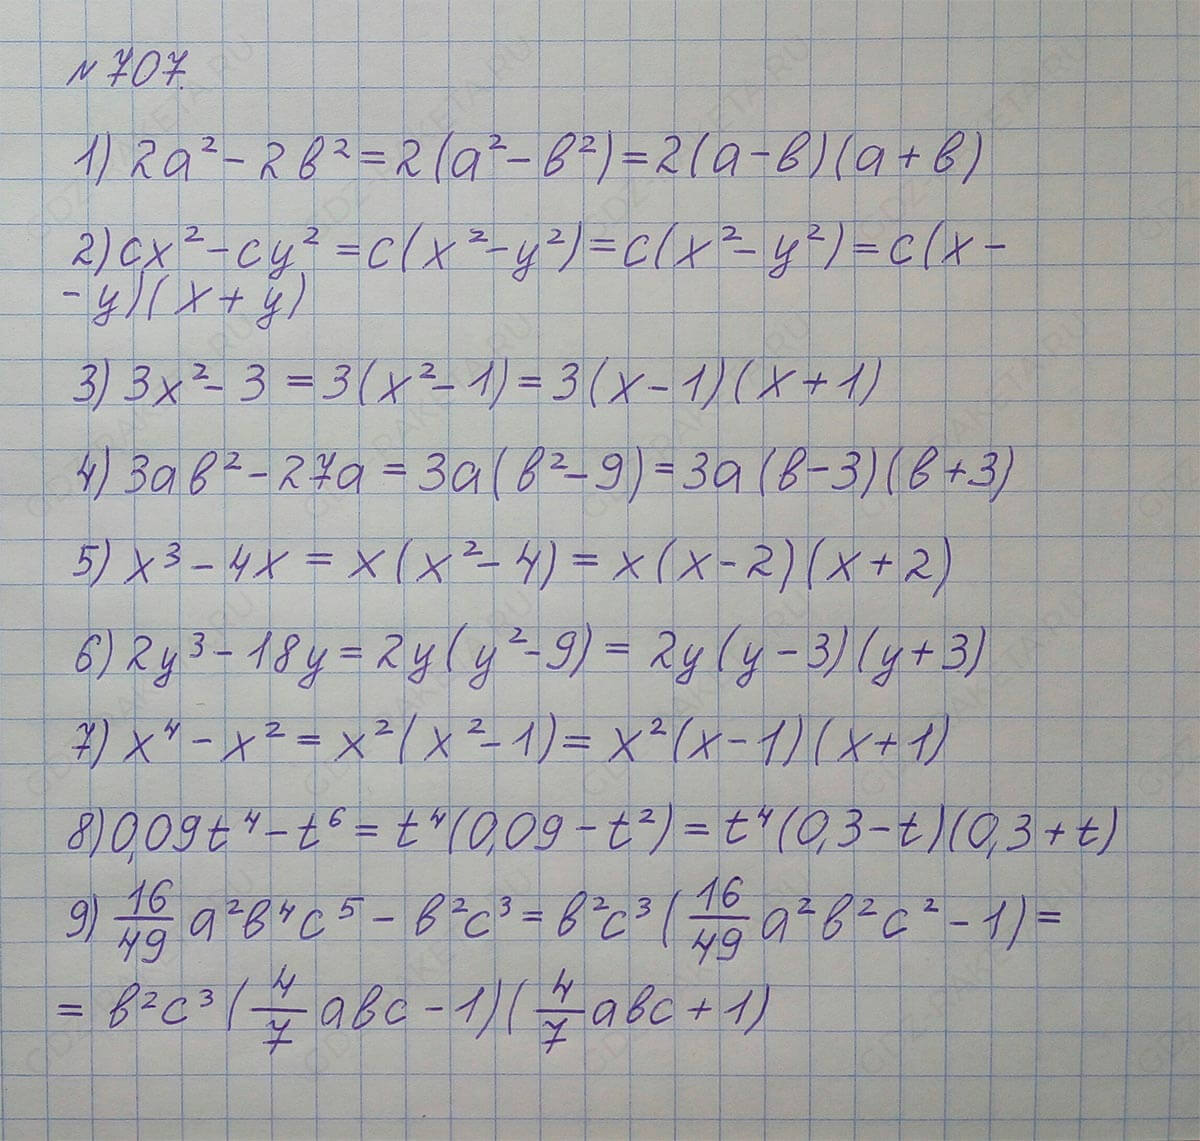 № 707.
1) 2a² - 2в² = 2(a² - в²) = 2(a - в)(a + в)
2) cx² - cy² = c(x² - y²) = c(x² - y²) = c(x -
- y)(x + y)
3) 3x² - 3 = 3(x² - 1) = 3(x - 1)(x + 1)
4) 3aв² - 27a = 3a(в² - 9) = 3a(в - 3)(в + 3)
5) x³ - 4x = x(x² - 4) = x(x - 2)(x + 2)
6) 2y³ - 18y = 2y(y² - 9) = 2y(y - 3)(y + 3)
7) x⁴ - x² = x²(x² - 1) = x²(x - 1)(x + 1)
8) 0,09t⁴ - t⁶ = t⁴(0,09 - t²) = t⁴(0,3 - t)(0,3 + t)
9) 16/49 a²в⁴c⁵ - в²c³ = в²c³(16/49 a²в²c² - 1) =
= в²c³(4/7 aвc - 1)(4/7 aвc + 1)
GDZ-RAKETA.RU